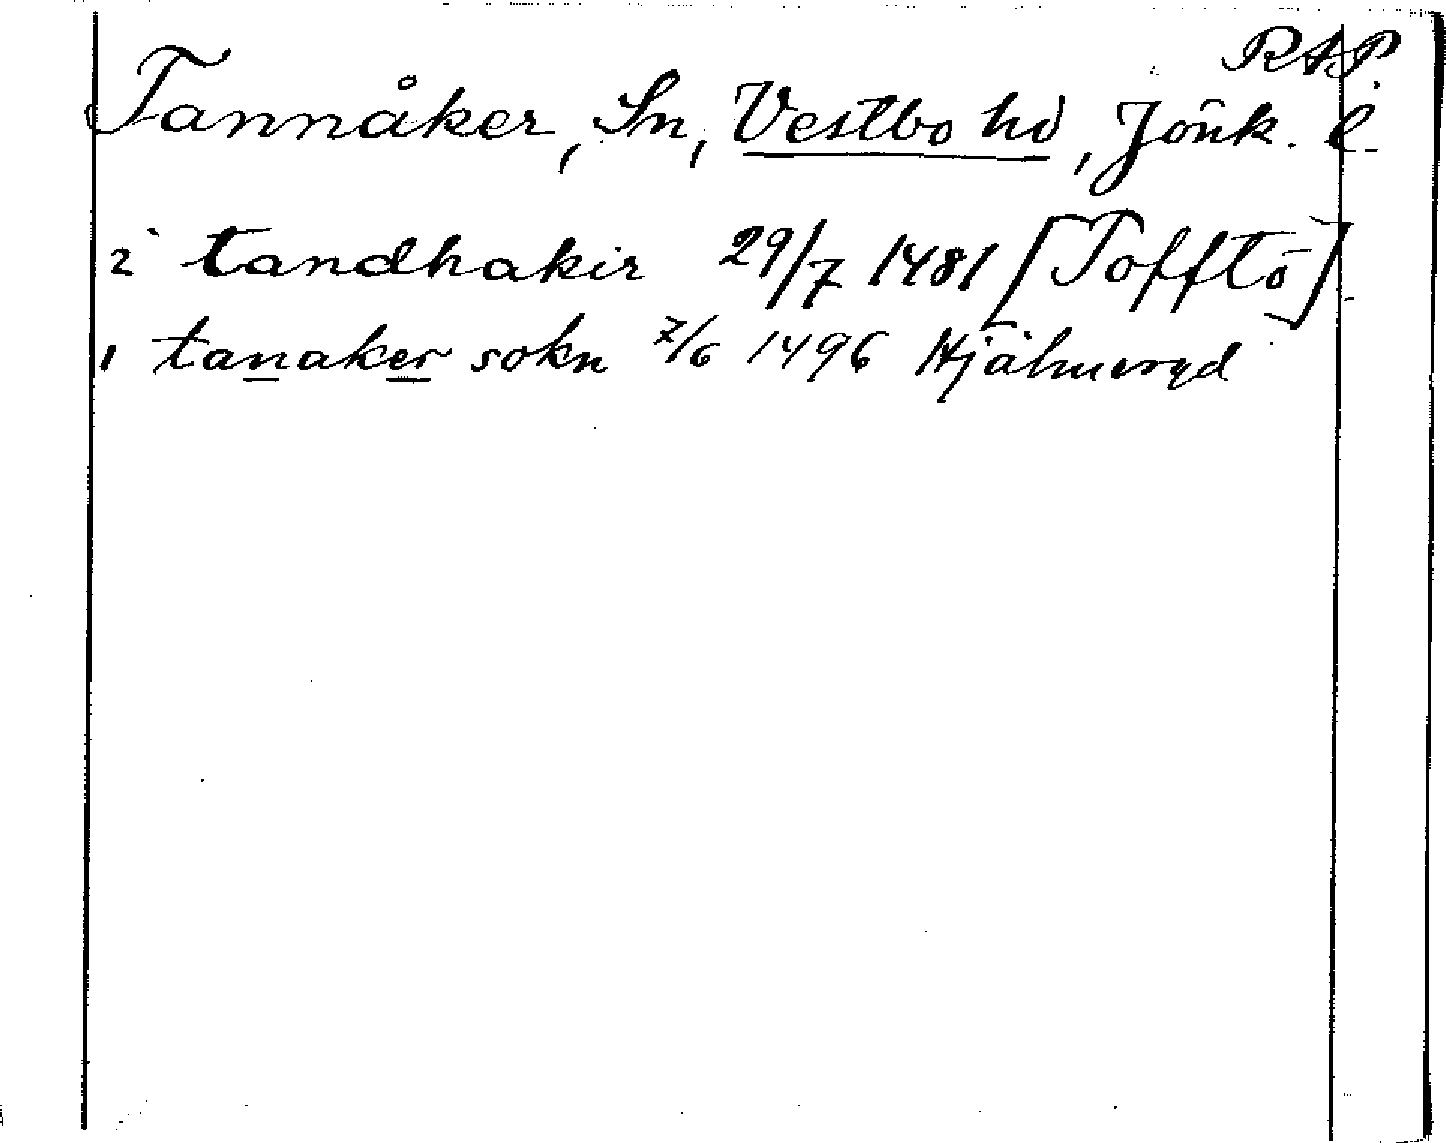 RAP.
Tannåker, Sn, Vestbo hd, Jönk. l.
i tandhakir 29/7 1481 [Tofftö]
i tanaker sokn 7/6 1496 Hjälmeryd